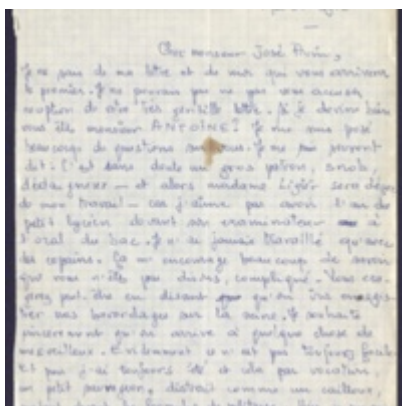 Cher monsieur José
Je ne sais de ma lettre et de moi qui vous arrivera
le premier. Je ne pouvais pas ne pas vous accuser
réception de votre très gentille lettre. Si je devine bien
vous êtes monsieur ANTOINE? Je me suis posé
beaucoup de questions sur vous. Je me suis souvent
dit: C'est sans doute un gros patron, snob,
dédaigneux — et alors madame Ligér sera déçue
de mon travail — car j'aime pas avoir l'air du
petit lycéen devant son examinateur à
l'oral du bac. Je n'ai jamais travaillé qu'avec
des copains. Ça m'encourage beaucoup de savoir
que vous n'êtes pas compliqué. Vous
peut-être en disant qu'on ira
nos sur la scène. Je souhaite
sincèrement qu'on arrive à quelque chose de
merveilleux. Evidemment ce n'est pas toujours facile
Et puis j'ai toujours été et cela par vocation,
un petit distrait comme un caillou,